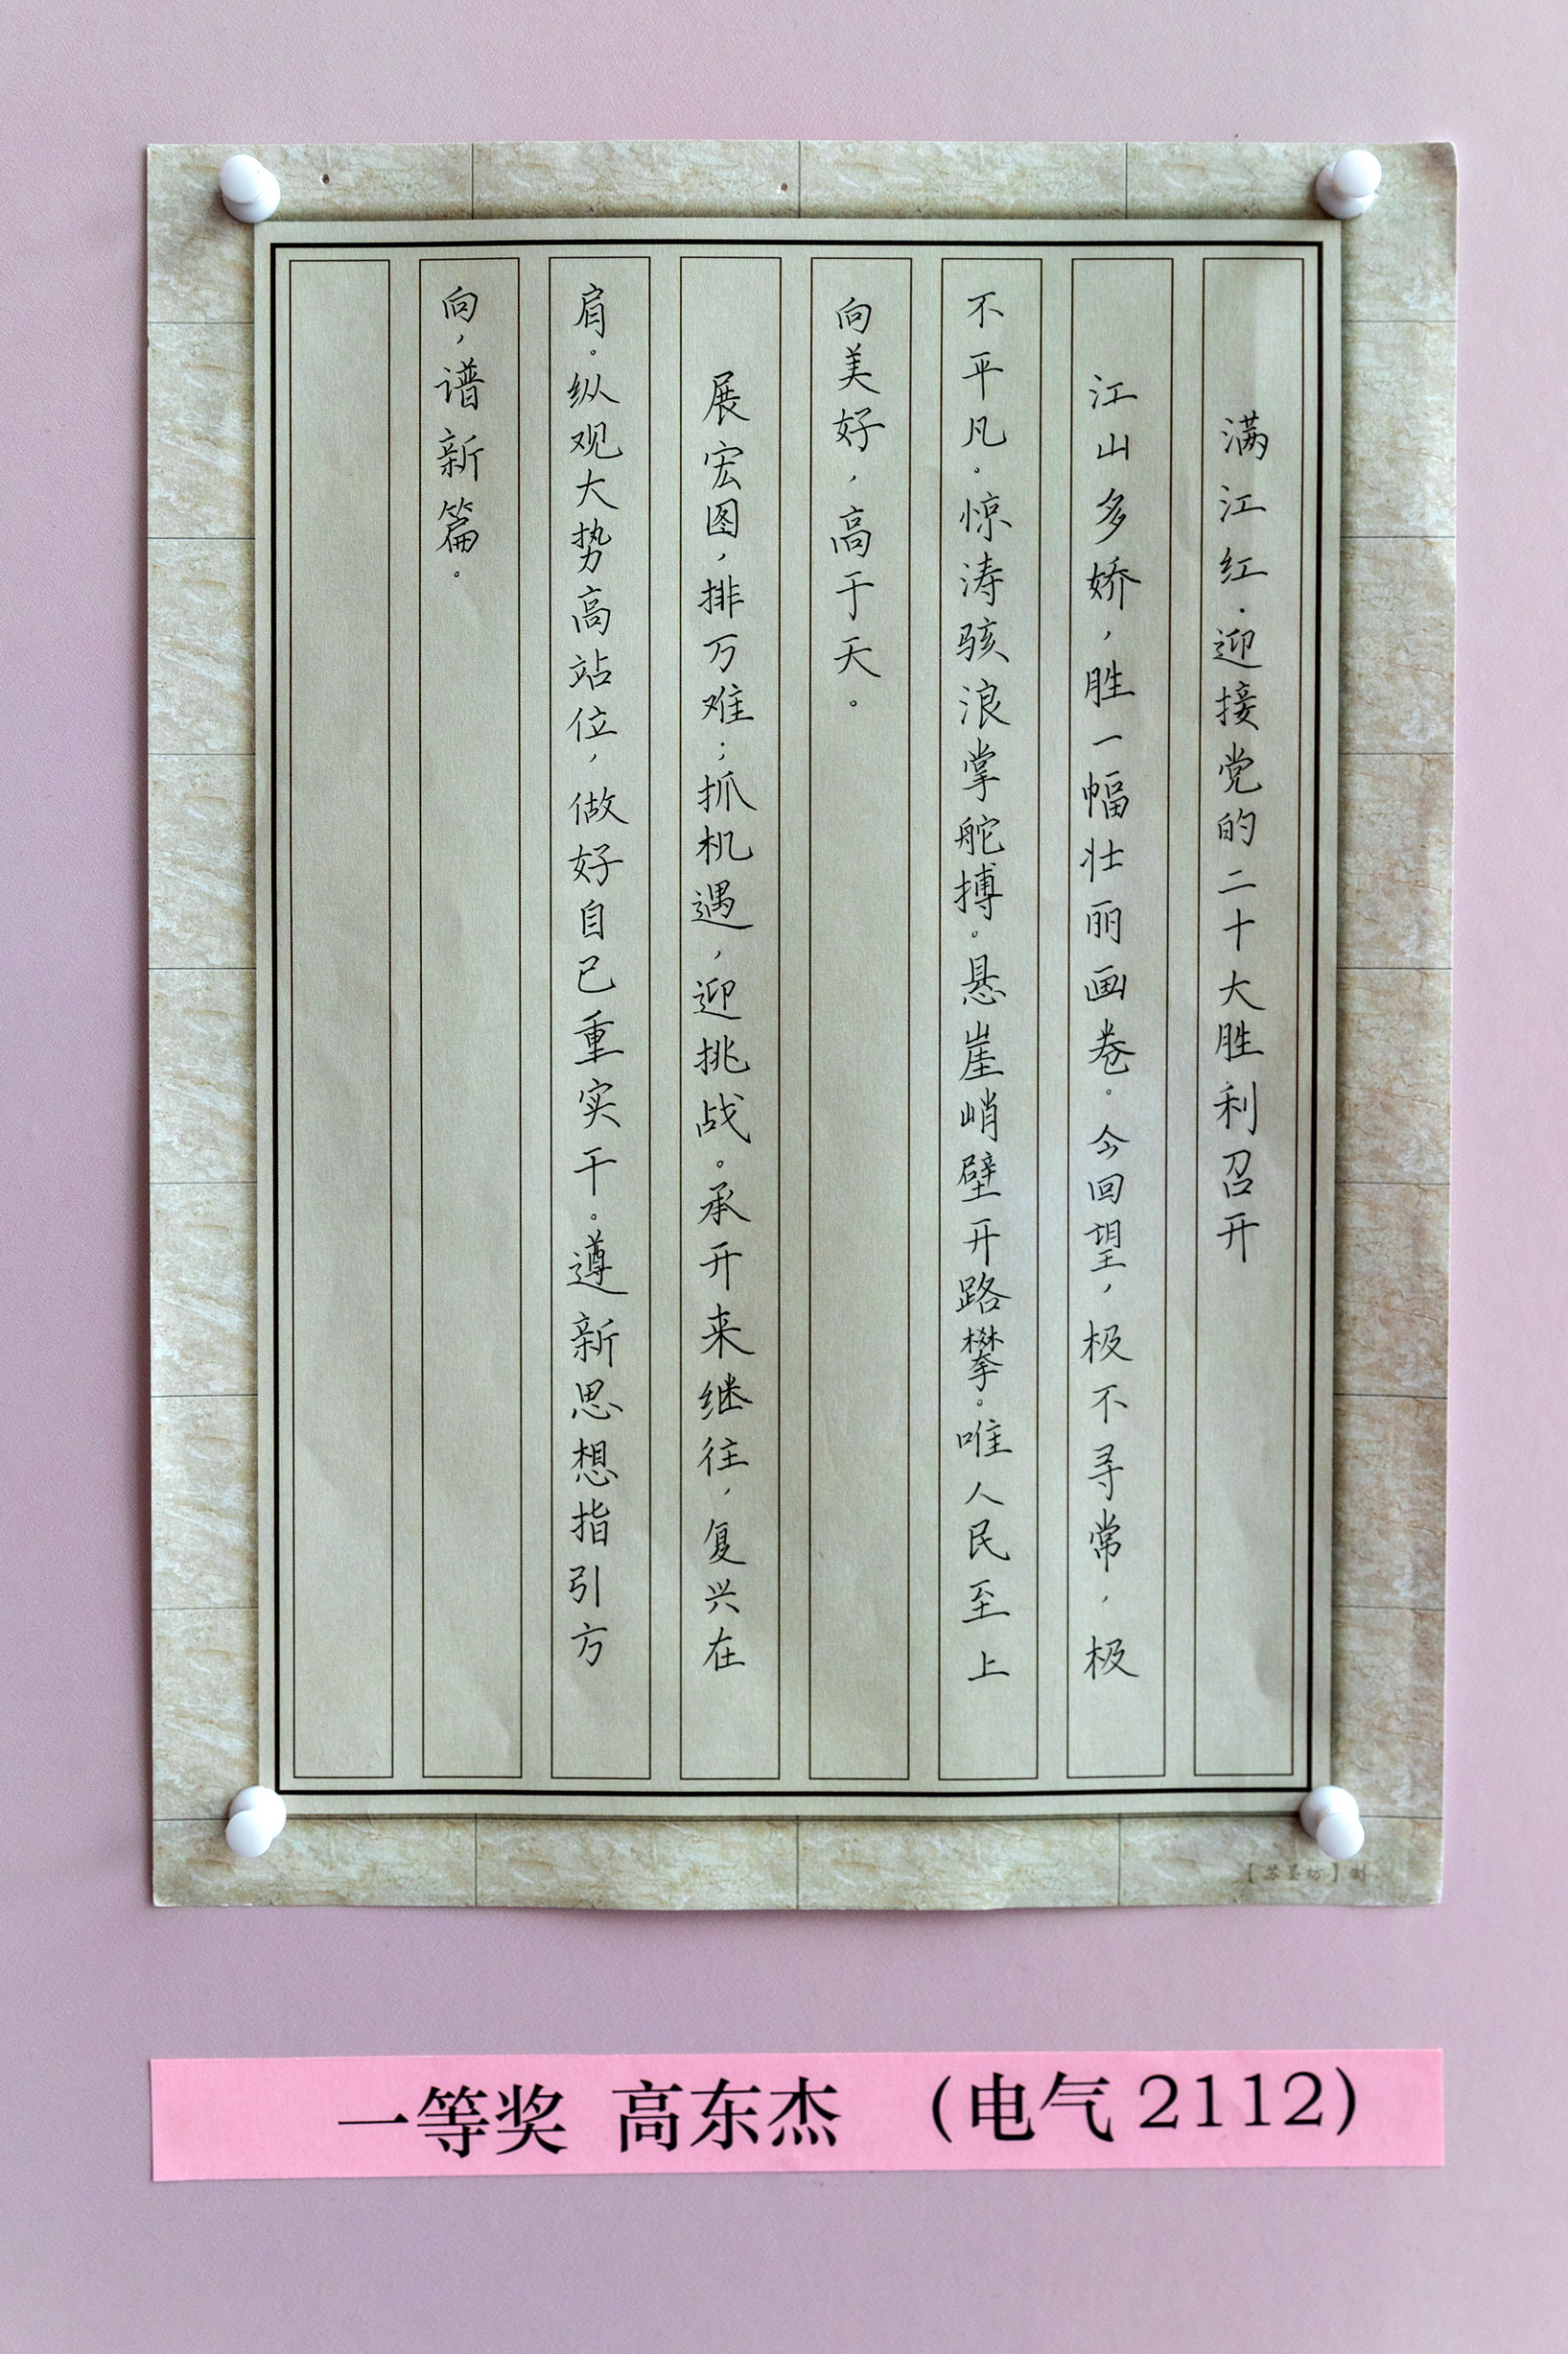 满江红·迎接党的二十大胜利召开
江山多娇，胜一幅壮丽画卷。今回望，极不寻常，极
不平凡。惊涛骇浪掌舵搏。悬崖峭壁开路攀。唯人民至上
向美好，高于天。
展宏图，排万难；抓机遇，迎挑战。承开来继往，复兴在
肩。纵观大势高站位，做好自己重实干。遵新思想指引方
向，谱新篇。
一等奖 高东杰 （电气2112）